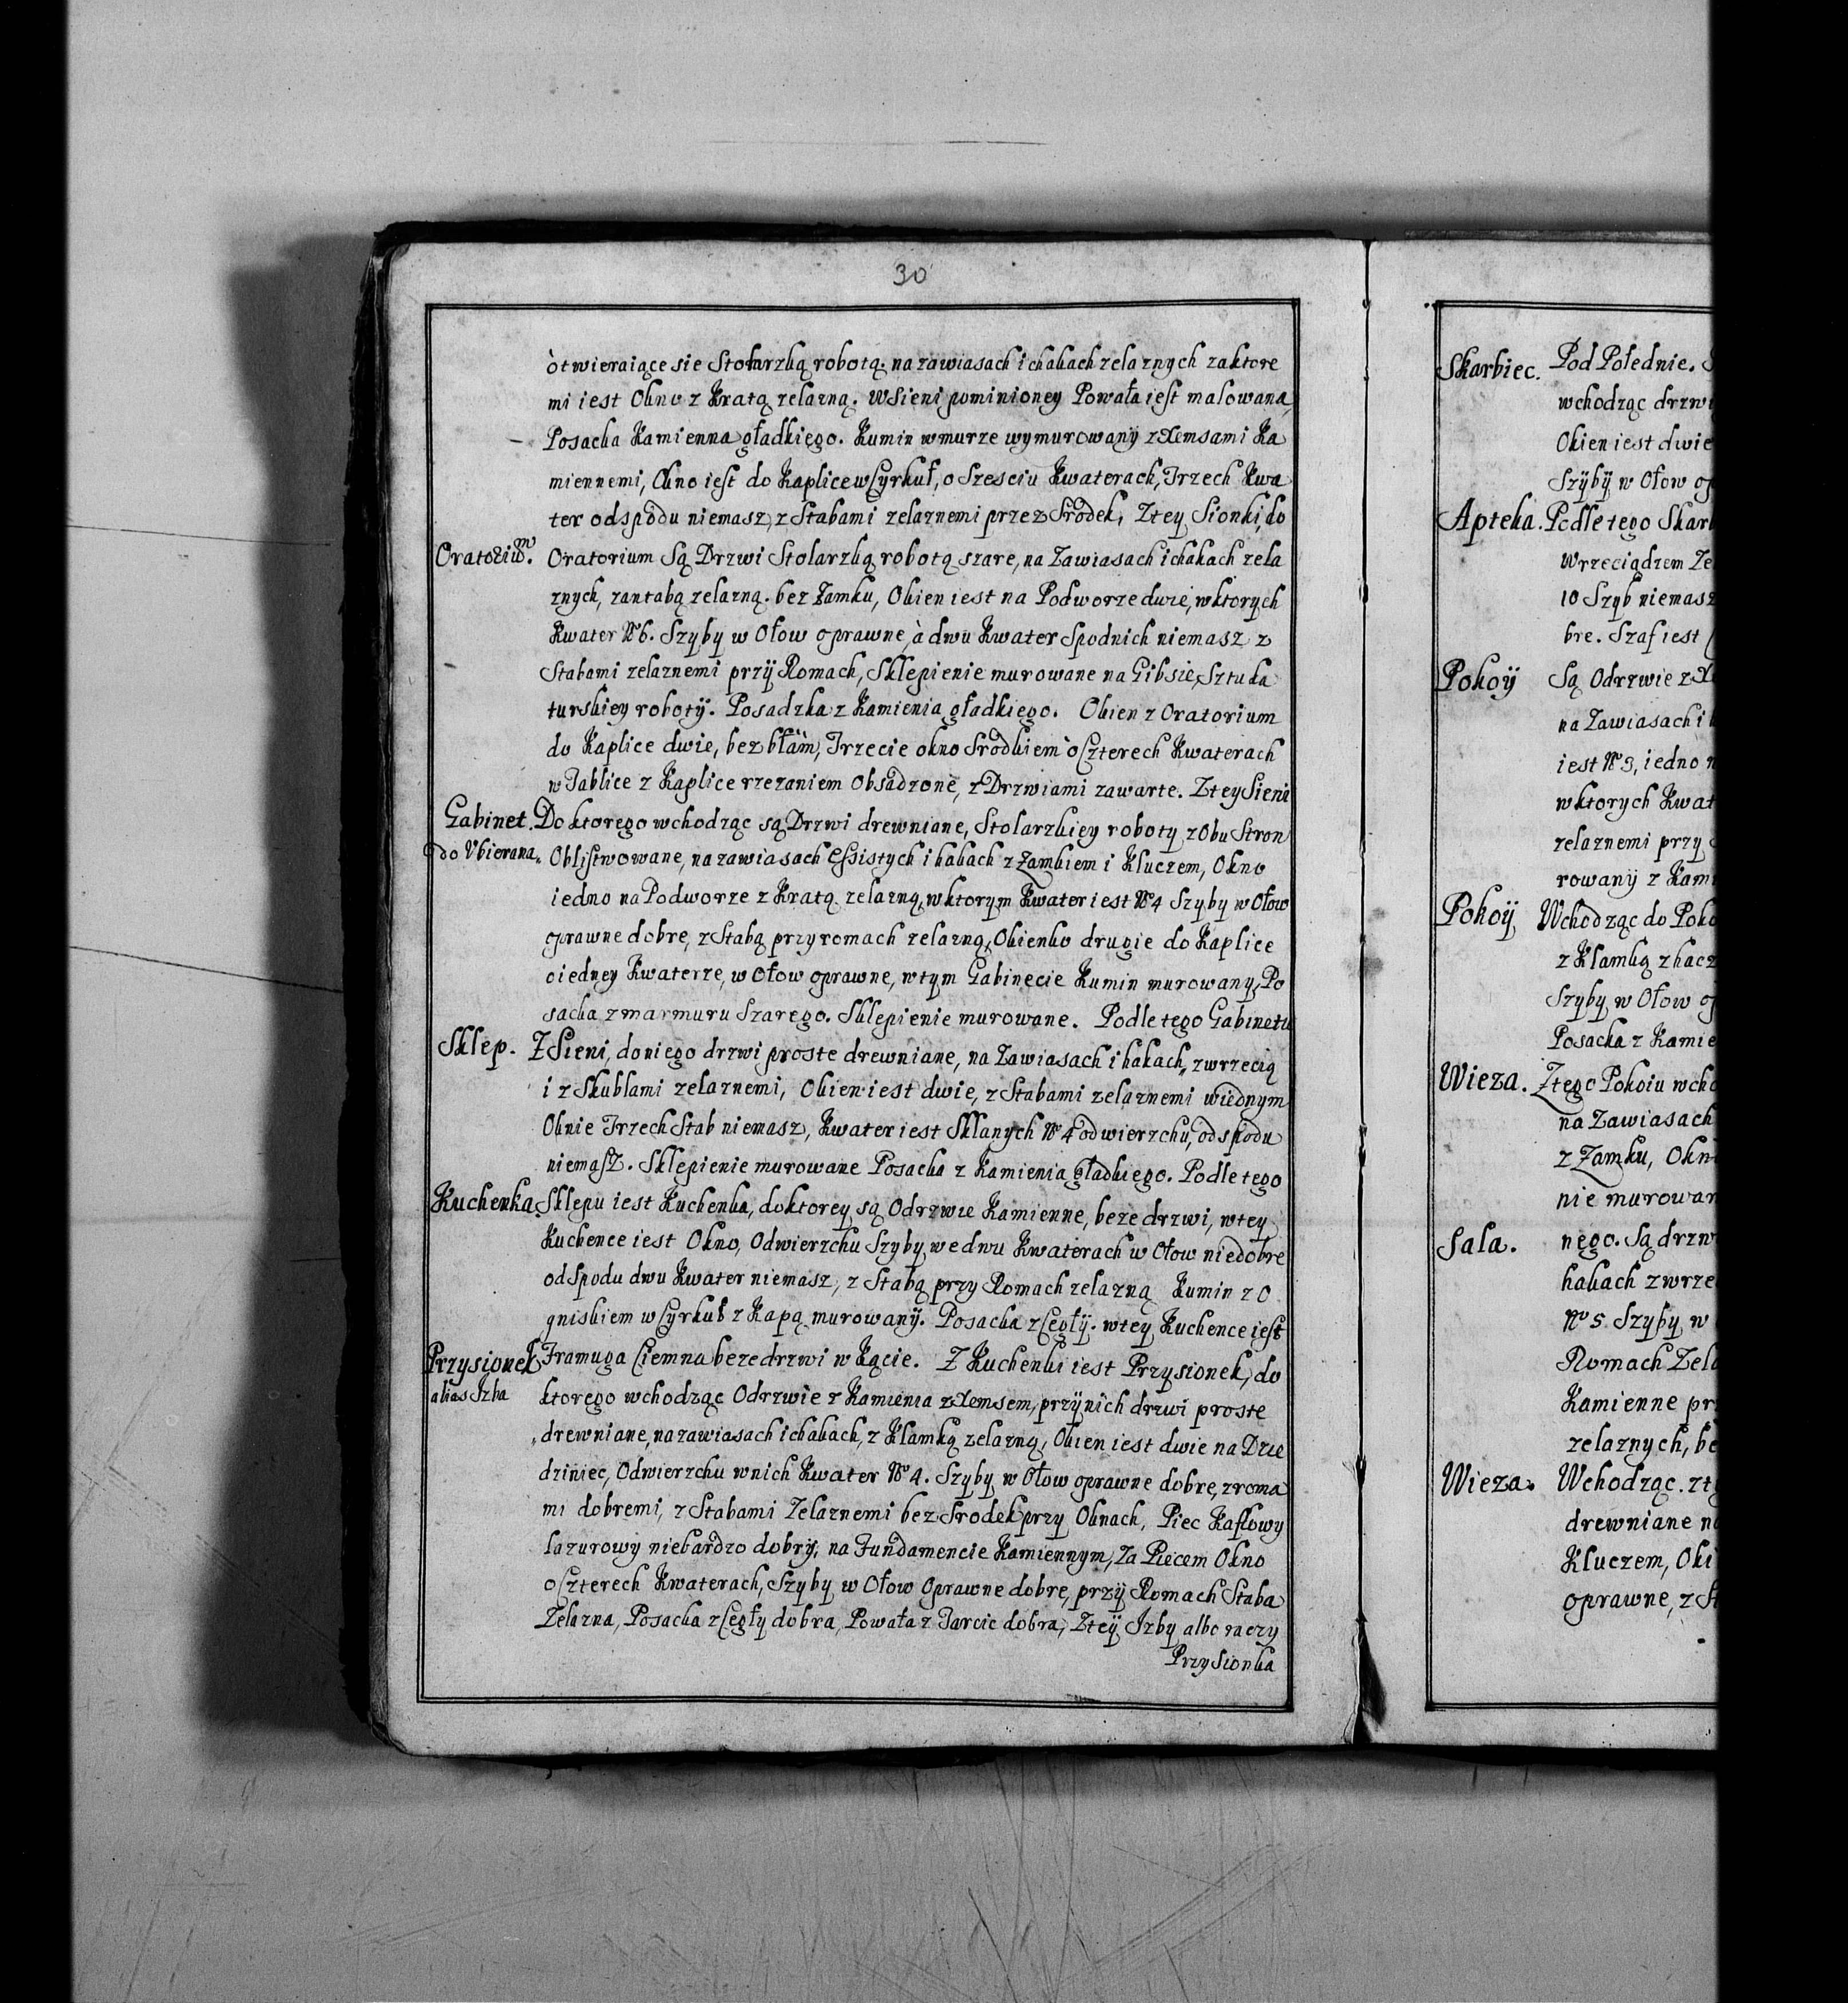 30
òtwieraiące sie Stolarzką robotą. na zawiasach i chakach zelaznych zaktore
mi iest Okno z Kratą zelazną. WSieni pominioney Powała iest malowana,
Posacka Kamienna gładkiego. Kumin wmurze wymurowany z Xemsami Ka
miennemi, Okno iest do Kaplice w Cyrkuł, o Szesciu Kwaterach, Trzech Kwa
ter odspodu niemasz, z Stabami zelaznemi przez Srodek, Ztey Sionki, do
Oratorium. Oratorium Są Drzwi Stolarzką robotą szare, na Zawiasach i chakach zela
znych, zantabą zelazną. bez Zamku, Okien iest na Podworze dwie, wktorych
Kwater No 6. Szyby w Ołow oprawne, à dwu Kwater Spodnich niemasz z
Stabami zelaznemi przÿ Romach, Sklepienie murowane na Gibsie, Sztuka
turskiey robotÿ. Posadzka z Kamienia gładkiego. Okien z Oratorium
do Kaplice dwie, bez błam, Trzecie okno Srodkiem o Czterech Kwaterach
w Tablice z Kaplice rzezaniem Obsadzone, z Drzwiami zawarte. Ztey Sieni
Gabinet. Do ktorego wchodząc są Drzwi drewniane, Stolarzkiey roboty z Obu Stron
do Vbierana. Oblistwowane, na zawiasach Essistych i hakach z Zamkiem i Kluczem, Okno
iedno na Podworze z Kratą zelazną, wktorym Kwater iest No 4 Szyby w Ołow
oprawne dobre, z Stabą przy romach zelazną, Okienko drugie do Kaplice
oiedney Kwaterze, w Ołow oprawne, wtym Gabinecie Kumin murowany, Po
sacka zmarmuru Szarego. Sklepienie murowane. Podle tego Gabinetu
Sklep. Z Sieni, doniego drzwi proste drewniane, na Zawiasach i hakach, zwrzecią
i z Skublami zelaznemi, Okien iest dwie, z Stabami zelaznemi wiednym
Oknie Trzech Stab niemasz, Kwater iest Sklanych No 4 odwierzchu, odspodu
niemasz. Sklepienie murowane Posacka z Kamienia gładkiego. Podle tego
Kuchenka. Sklepu iest Kuchenka, doktorey są Odrzwie Kamienne, beze drzwi, wtey
Kuchence iest Okno, Odwierzchu Szyby we dwu Kwaterach w Ołow niedobre
od Spodu dwu Kwater niemasz, z Stabą przy Romach zelazną Kumin z O
gniskiem w Cyrkuł z Kapą murowanÿ. Posacka z Cegłÿ. wtey Kuchence iest
Przysionek Framuga Ciemna beze drzwi w Kącie. Z Kuchenki iest Przysionek, do
alias Izba ktorego wchodząc Odrzwie z Kamienia z Xemsem, przÿ nich drzwi proste
drewniane, na zawiasach i chakach, z Klamką zelazną, Okien iest dwie na Dzie
dziniec, Odwierzchu wnich Kwater No 4. Szyby w Ołow oprawne dobre, zroma
mi dobremi, z Stabami Zelaznemi bez Srodek przy Oknach, Piec Kaflowy
lazurowy niebardzo dobrÿ, na Fundamencie Kamiennym, Za Piecem Okno
o Czterech Kwaterach, Szyby w Ołow Oprawne dobre, przÿ Romach Staba
Zelazna, Posacka z Cegły dobra, Powała z Tarcic dobra, Ztey Izby albo raczy
Przysionka
Skarbiec. Pod Połednie.
wchodząc drzwi
Okien iest dwie
Szÿbÿ w Ołow op
Apteka. Podle tego Skar
Wrzeciądzem Ze
10 Szyb niemasz
bre. Szaf iest
Pokoÿ Są Odrzwie z X
na Zawiasach i
iest No 3, iedno n
wktorych Kwat
zelaznemi przy
rowanÿ z Kam
Pokoÿ Wchodząc do Poko
z Klamką zhacz
Szyby w Ołow op
Posacka z Kamie
Wieza. Ztego Pokoiu wcho
na Zawiasach
z Zamku, Okn
nie murowan
Sala. nego. Są drzw
hakach zwrze
No 5 Szyby w
Romach Zela
Kamienne pr
zelaznych, be
Wieza. Wchodząc. zt
drewniane na
Kluczem, Oki
oprawne, z St